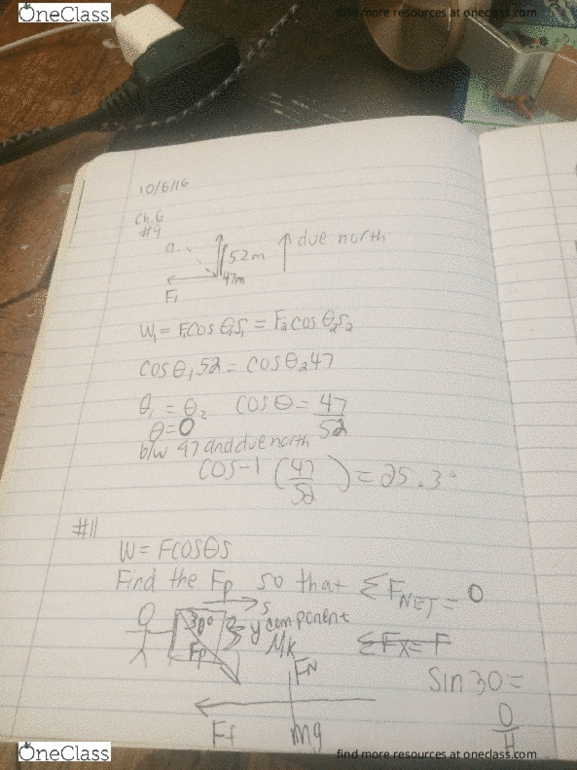 OneClass
find more resources at oneclass.com
10/6/16
Ch. 6
#9
a
52m
due north
47m
F1
W1 = F1cos θ1s1 = F2cos θ2s2
cos θ1 52 = cos θ2 47
θ1 = θ2 cos θ = 47/52
θ = 0
b/w 47 and due north
cos-1 (47/52) = 25.3°
#11
W = Fcosθs
Find the Fp so that ΣFNET = 0
s
30°
y component
Fp
Mk
ΣFx = F
FN
sin 30 =
O/H
Ff
mg
OneClass
find more resources at oneclass.com